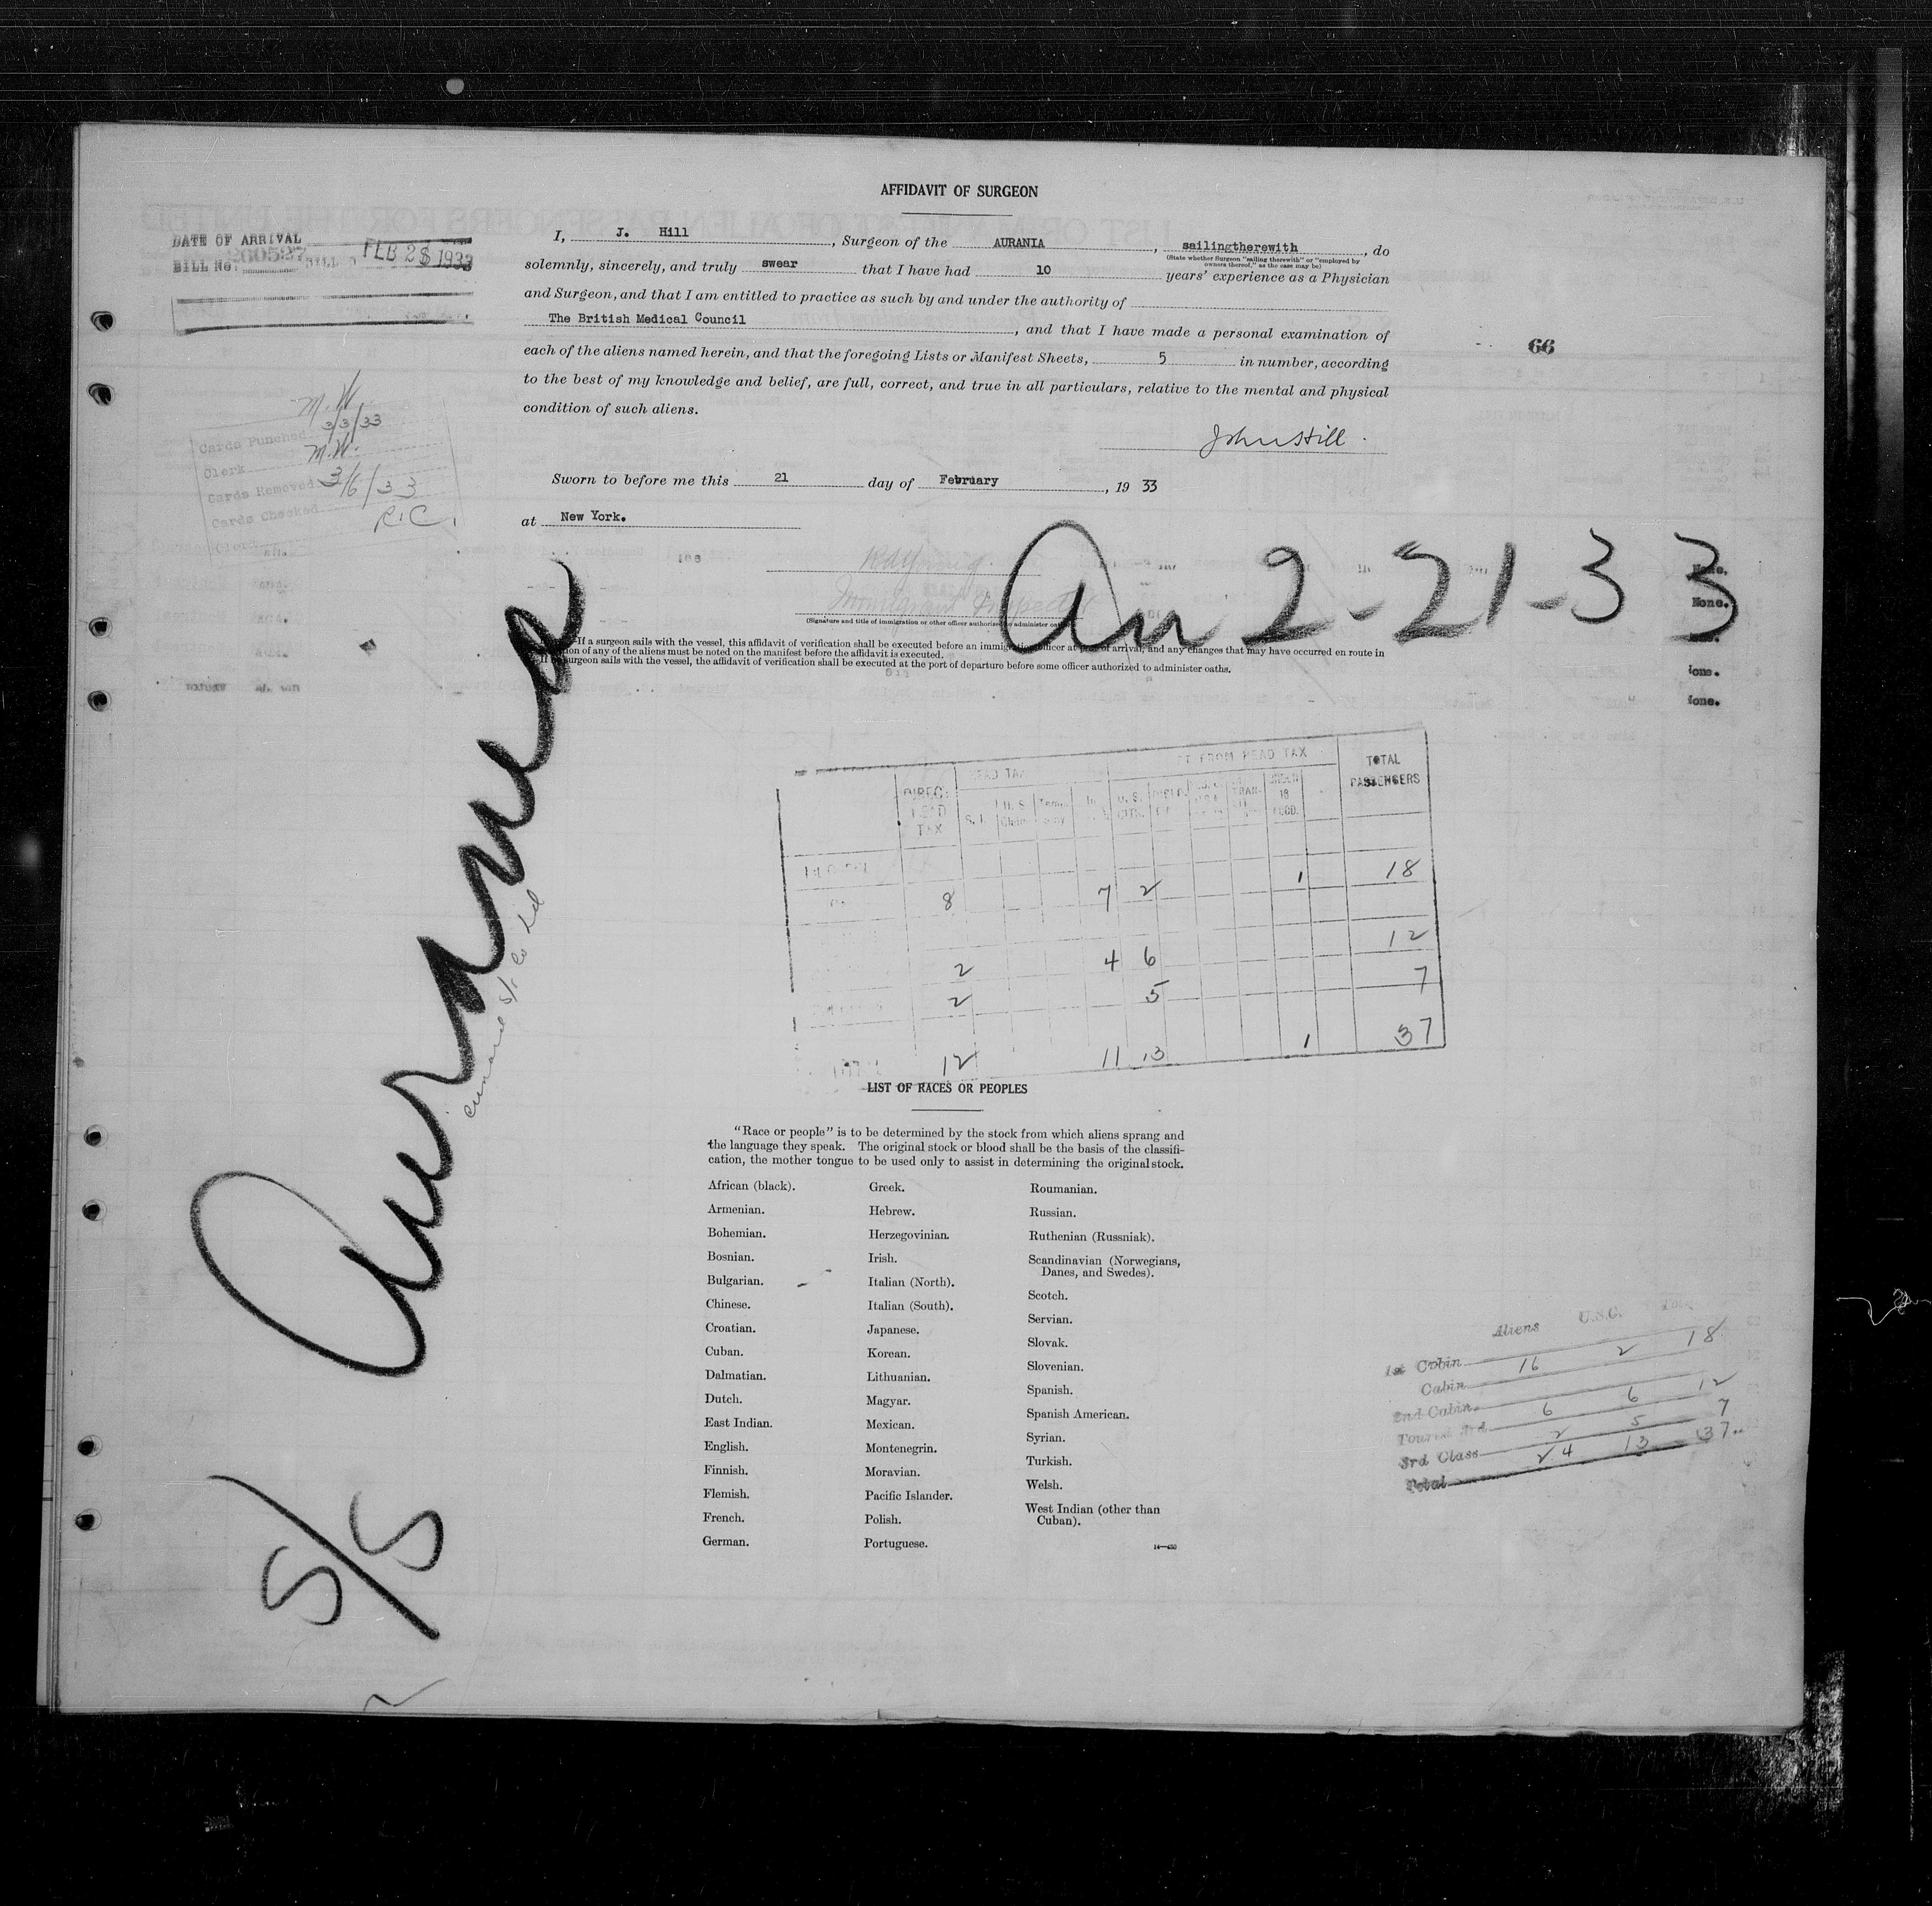 AFFIDAVIT OF SURGEON
DATE OF ARRIVAL
BILL No.
FEB 2 1933
I, J. Hill, Surgeon of the AURANIA, sailingtherewith, do
(State whether Surgeon "sailing therewith" or "employed by
owners thereof," as the case may be)
solemnly, sincerely, and truly swear that I have had 10 years' experience as a Physician
and Surgeon, and that I am entitled to practice as such by and under the authority of
The British Medical Council, and that I have made a personal examination of
each of the aliens named herein, and that the foregoing Lists or Manifest Sheets, 5 in number, according
to the best of my knowledge and belief, are full, correct, and true in all particulars, relative to the mental and physical
condition of such aliens.
66
John Hill.
M.W.
Cards Punched 3/3/33
Clerk M.W.
Cards Removed 3/6/33
Cards Checked R.C.
Clerk
Sworn to before me this 21 day of February, 19 33
at New York.
Immigrant Inspector
(Signature and title of immigration or other officer authorized to administer
Arr 2-21-33
None.
None.
If a surgeon sails with the vessel, this affidavit of verification shall be executed before an immigration officer at port of arrival, and any changes that may have occurred en route in
of any of the aliens must be noted on the manifest before the affidavit is executed.
surgeon sails with the vessel, the affidavit of verification shall be executed at the port of departure before some officer authorized to administer oaths.
S/S Aurania
Cunard S/S Co Ltd
FROM HEAD TAX
TOTAL
PASSENGERS
DIRECT
HEAD
TAX
S. I.
U. S.
Claim
U. S.
CITS.
TRAN-
SIT
UNDER
16
ACCD.
8 7 2 1 18
2 4 6 12
2 5 7
12 11 13 1 37
LIST OF RACES OR PEOPLES
"Race or people" is to be determined by the stock from which aliens sprang and
the language they speak. The original stock or blood shall be the basis of the classifi-
cation, the mother tongue to be used only to assist in determining the original stock.
African (black).
Armenian.
Bohemian.
Bosnian.
Bulgarian.
Chinese.
Croatian.
Cuban.
Dalmatian.
Dutch.
East Indian.
English.
Finnish.
Flemish.
French.
German.
Greek.
Hebrew.
Herzegovinian.
Irish.
Italian (North).
Italian (South).
Japanese.
Korean.
Lithuanian.
Magyar.
Mexican.
Montenegrin.
Moravian.
Pacific Islander.
Polish.
Portuguese.
Roumanian.
Russian.
Ruthenian (Russniak).
Scandinavian (Norwegians,
Danes, and Swedes).
Scotch.
Servian.
Slovak.
Slovenian.
Spanish.
Spanish American.
Syrian.
Turkish.
Welsh.
West Indian (other than
Cuban).
Aliens U.S.C. Total
1st Cabin 16 2 18
Cabin
2nd Cabin 6 6 12
Tourist 3rd 2 5 7
3rd Class 24 13 37
Total